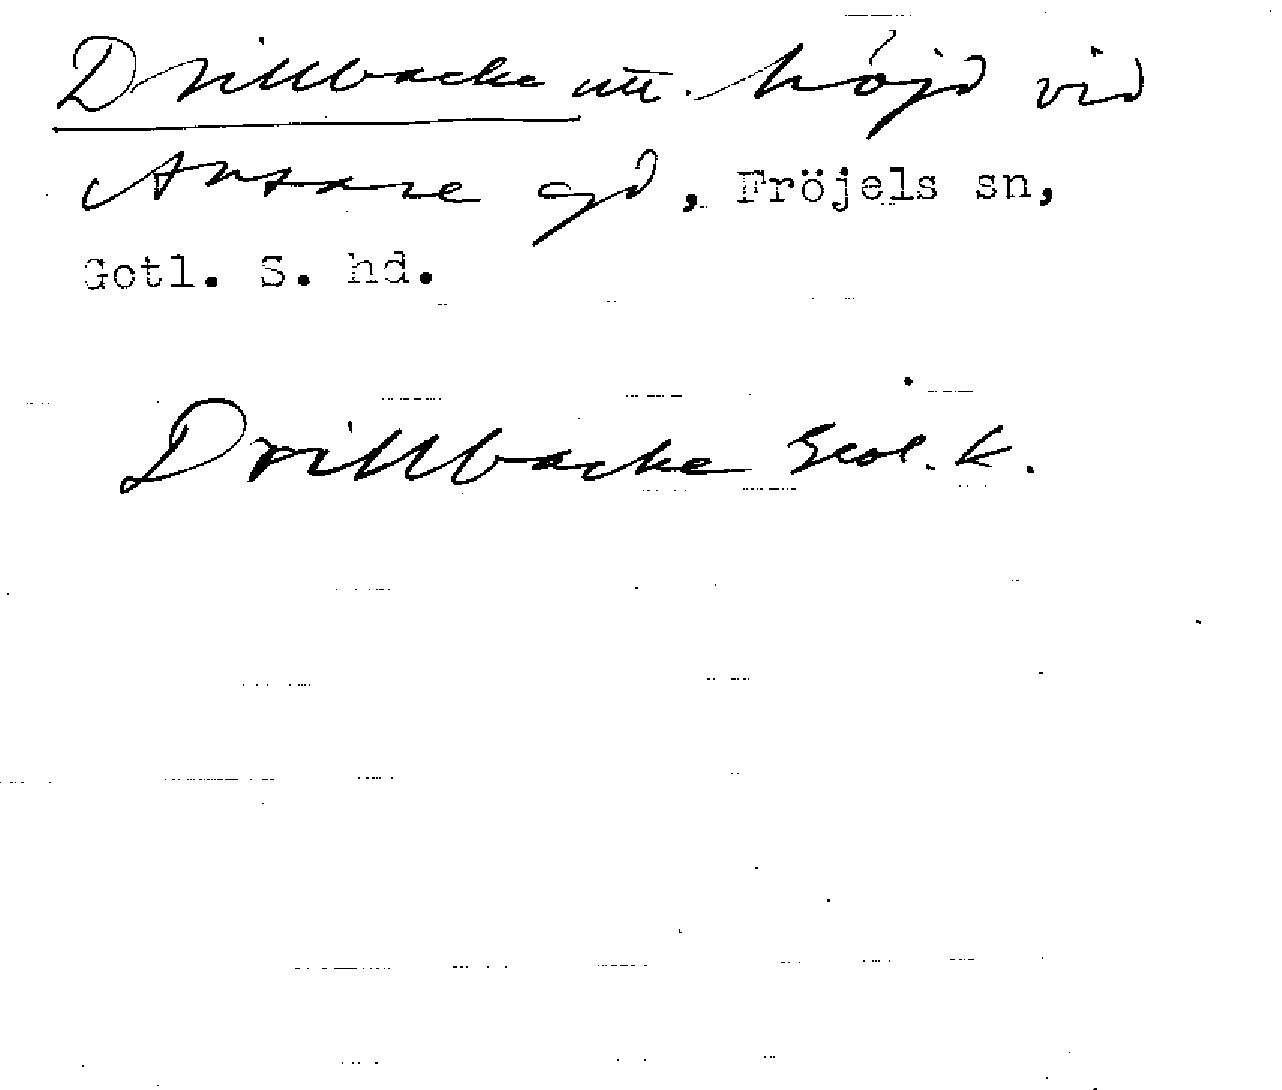 Drillbacke utt. höjd vid
Ansare gd, Fröjels sn,
Gotl. S. hd.
Drillbacke Geol. k.